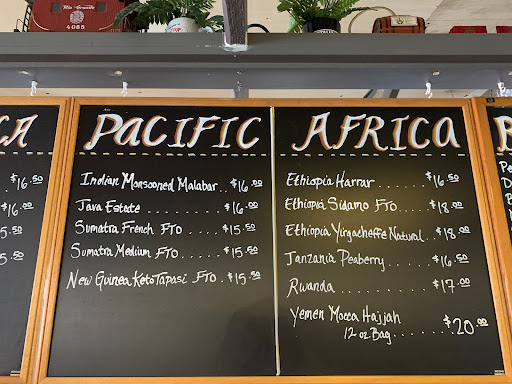 Rio Grande
4065
CA
. $16.50
$16.00
5.50
5.50
PACIFIC
Indian Monsooned Malabar . . $16.00
Java Estate . . . . . . . . . . $16.00
Sumatra French FTO . . . . $15.50
Sumatra Medium FTO . . . . $15.50
New Guinea KetoTapasi FTO . $15.50
AFRICA
Ethiopia Harrar . . . . . . . $16.50
Ethiopia Sidamo FTO . . . . $18.00
Ethiopia Yirgacheffe Natural . . $18.00
Tanzania Peaberry . . . . . . $16.50
Rwanda . . . . . . . . . . $17.00
Yemen Mocca Hajjah
12 oz Bag . . . . . . . $20.00